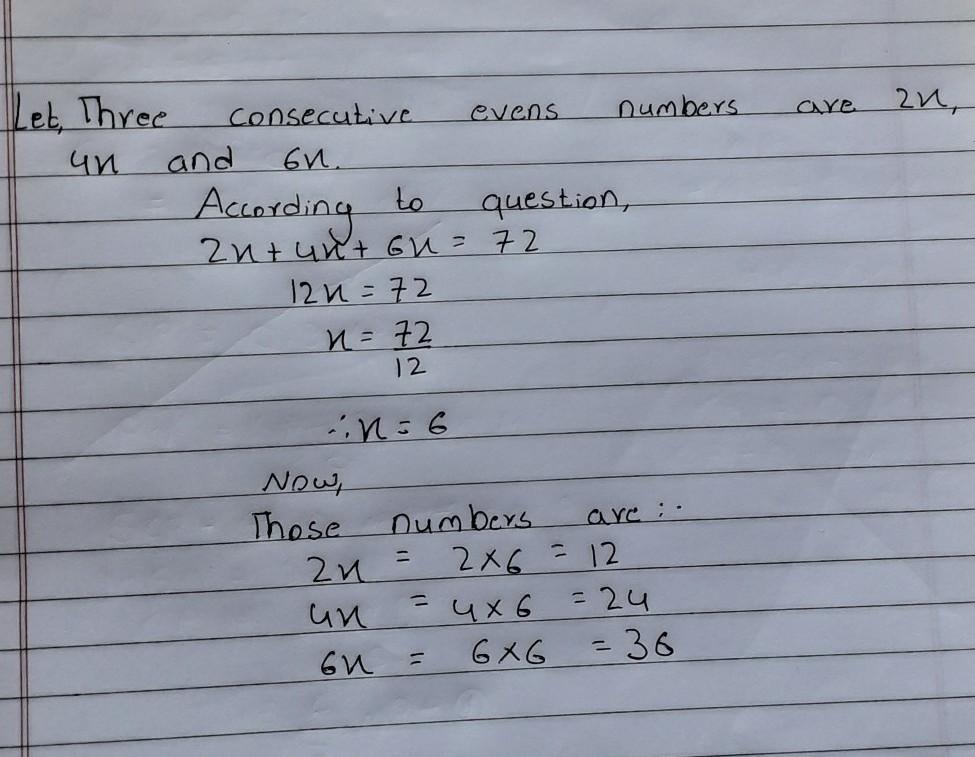 Let, Three consecutive evens numbers are 2x,
4x and 6x.
According to question,
2x + 4x + 6x = 72
12x = 72
x = 72
12
∴ x = 6
Now,
Those numbers are :-
2x = 2×6 = 12
4x = 4×6 = 24
6x = 6×6 = 36